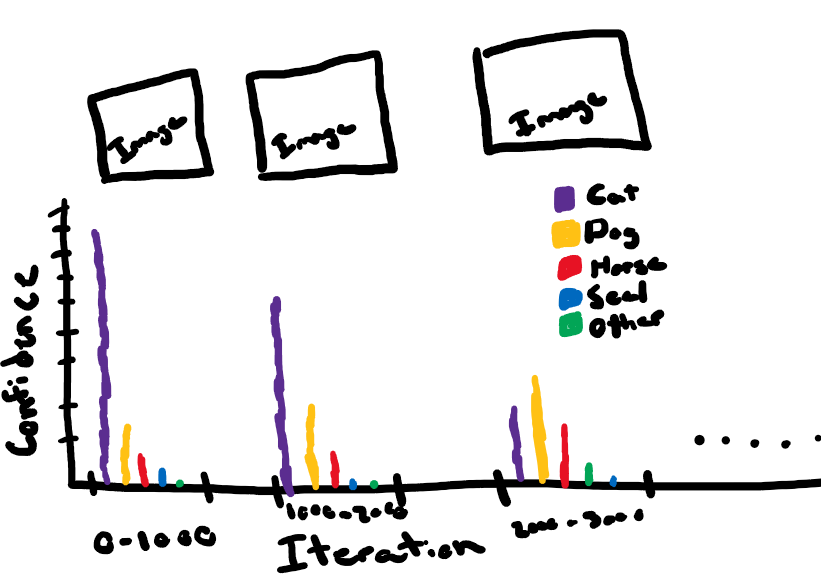 Image
Image
Image
Cat
Dog
Horse
Seal
Other
Confidence
0-1000
1000-2000
2000-3000
Iteration